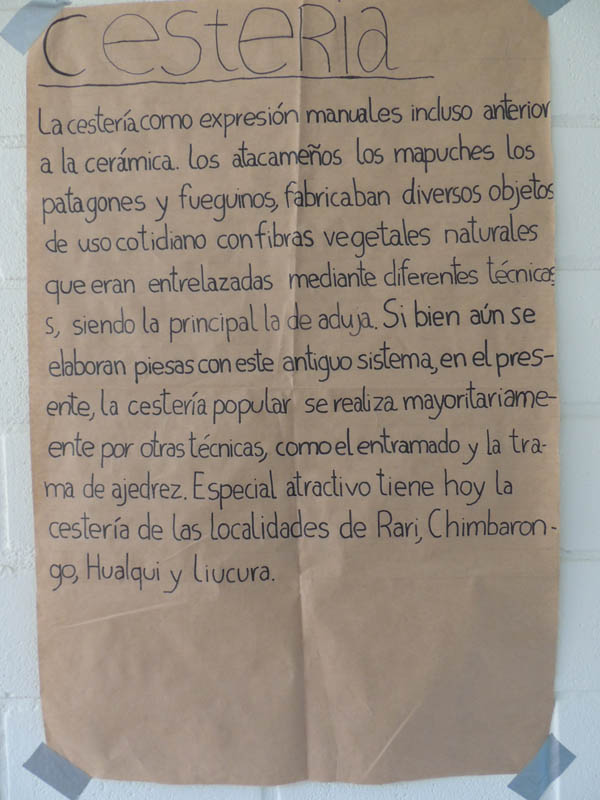 cesteRia
La cestería como expresión manuales incluso anterior
a la cerámica. Los atacameños los mapuches los
patagones y fueguinos, fabricaban diversos objetos
de uso cotidiano con fibras vegetales naturales
que eran entrelazadas mediante diferentes técnicas
s, siendo la principal la de aduja. Si bien aún se
elaboran piesas con este antiguo sistema, en el pres-
ente, la cestería popular se realiza mayoritariame-
ente por otras técnicas, como el entramado y la tra-
ma de ajedrez. Especial atractivo tiene hoy la
cestería de las localidades de Rari, Chimbaron-
go, Hualqui y Liucura.